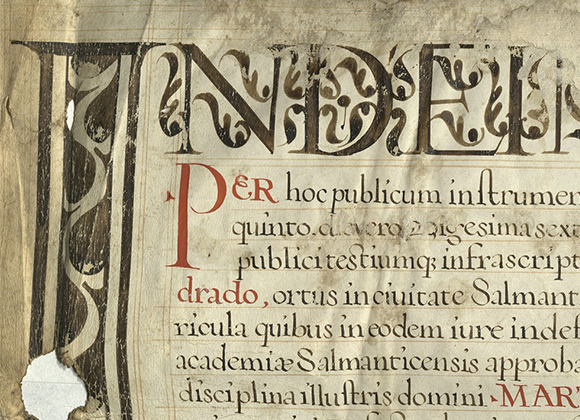 INDEI
PER hoc publicum inſtrumen
quinto. die vero Vigesima sext
publici teſtiumq; infrascript
drado, ortus in ciuitate Salmant
ricula quibus in eodem iure indef
academiæ Salmanticensis approba
disciplina illuſtris domini. MAR